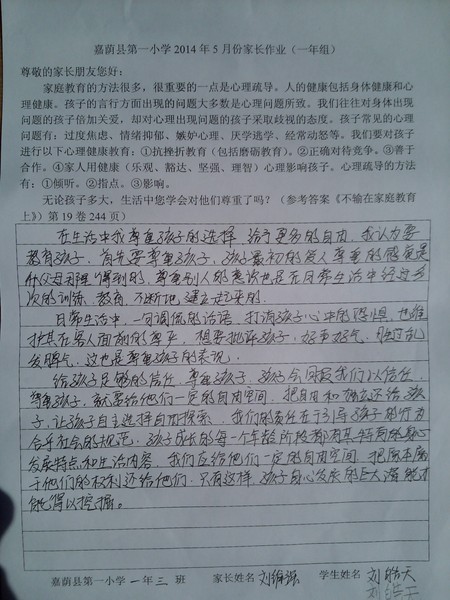 嘉荫县第一小学2014年5月份家长作业(一年组)
尊敬的家长朋友您好:
家庭教育的方法很多,很重要的一点是心理疏导。人的健康包括身体健康和心
理健康。孩子的言行方面出现的问题大多数是心理问题所致。我们往往对身体出现
问题的孩子倍加关爱,却对心理出现问题的孩子采取歧视的态度。孩子常见的心理
问题有:过度焦虑、情绪抑郁、嫉妒心理、厌学逃学、经常动怒等。我们要对孩子
进行以下心理健康教育:①抗挫折教育(包括磨砺教育)。②正确对待竞争。③善于
合作。④家人用健康(乐观、豁达、坚强、理智)心理影响孩子。心理疏导的方法
有:①倾听。②指点。③影响。
无论孩子多大,生活中您学会对他们尊重了吗?(参考答案《不输在家庭教育
上》)第19卷244页)
在生活中我尊重孩子的选择,给予更多的自由,我认为要
教育孩子,首先要尊重孩子,孩子最初的受人尊重的感觉是
从父母那里得到的,尊重别人的意识也是在日常生活中经过多
次的训练、教育、不断地建立起来的。
日常生活中,一句调侃的话语,打消孩子心中的恐惧,也维
护其在客人面前的尊严,想要批评孩子,好声好气,胜过乱
发脾气,这也是尊重孩子的表现。
给孩子足够的信任,尊重孩子,孩子会回报我们以信任,
尊重孩子,就要给他们一定的自由空间,把自由和独立还给孩
子,让孩子自主选择自由探索,我们的责任在于引导孩子的行为
合乎社会的规范,孩子成长的每一个年龄阶段都有其特有的身心
发展特点和生活内容,我们应给他们一定的自由空间,把原本属
于他们的权利还给他们,只有这样,孩子身心发展的巨大潜能才
能得以挖掘。
嘉荫县第一小学 一年三 班 家长姓名 学生姓名 刘皓天
刘皓天